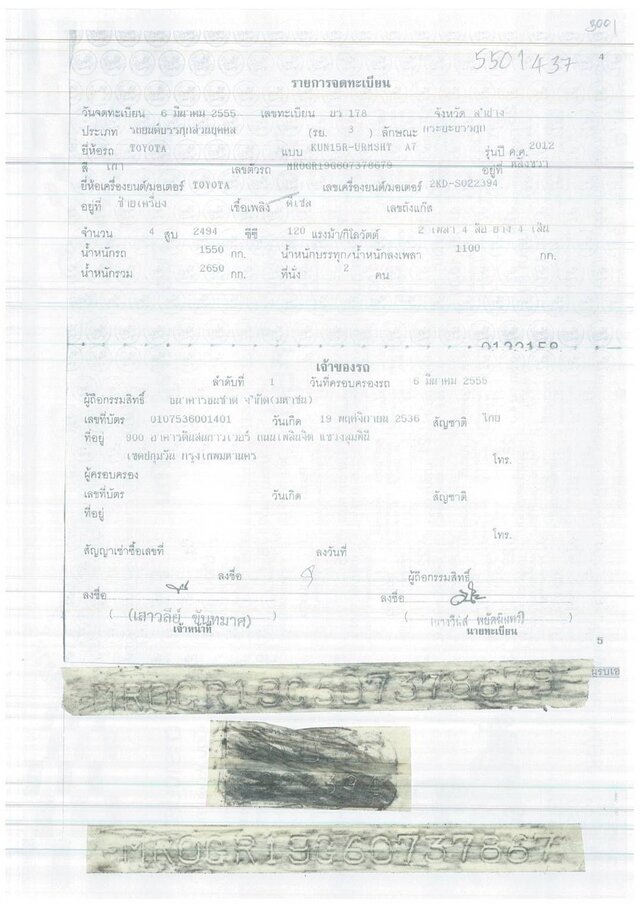 5501437
4
รายการจดทะเบียน
วันจดทะเบียน 6 มีนาคม 2555 เลขทะเบียน บว 178 จังหวัด ลำปาง
ประเภท รถยนต์บรรทุกส่วนบุคคล (รย. 3 ) ลักษณะ กระบะบรรทุก
ยี่ห้อรถ TOYOTA แบบ KUN15R-URMSHT A7 รุ่นปี ค.ศ. 2012
สี เทา เลขตัวรถ MR0GR19G607378679 อยู่ที่
ยี่ห้อเครื่องยนต์/มอเตอร์ TOYOTA เลขเครื่องยนต์/มอเตอร์ 2KD-S022394
อยู่ที่ ซ้ายเครื่อง เชื้อเพลิง ดีเซล เลขถังแก๊ส
จำนวน 4 สูบ 2494 ซีซี 120 แรงม้า/กิโลวัตต์ 2 เพลา 4 ล้อ ยาง 4 เส้น
น้ำหนักรถ 1550 กก. น้ำหนักบรรทุก/น้ำหนักลงเพลา 1100 กก.
น้ำหนักรวม 2650 กก. ที่นั่ง 2 คน
เจ้าของรถ
ลำดับที่ 1 วันที่ครอบครองรถ 6 มีนาคม 2555
ผู้ถือกรรมสิทธิ์ ธนาคารธนชาต จำกัด(มหาชน)
เลขที่บัตร 0107536001401 วันเกิด 19 พฤศจิกายน 2536 สัญชาติ ไทย
ที่อยู่ 900 อาคารต้นสนทาวเวอร์ ถนนเพลินจิต แขวงลุมพินี
เขตปทุมวัน กรุงเทพมหานคร โทร.
ผู้ครอบครอง
เลขที่บัตร วันเกิด สัญชาติ
ที่อยู่
โทร.
สัญญาเช่าซื้อเลขที่ ลงวันที่
ลงชื่อ ผู้ถือกรรมสิทธิ์
ลงชื่อ ลงชื่อ
(เสาวลีย์ ขันทมาศ)
เจ้าหน้าที่ นายทะเบียน
5
MR0GR19G607378679
MR0GR19G60737867